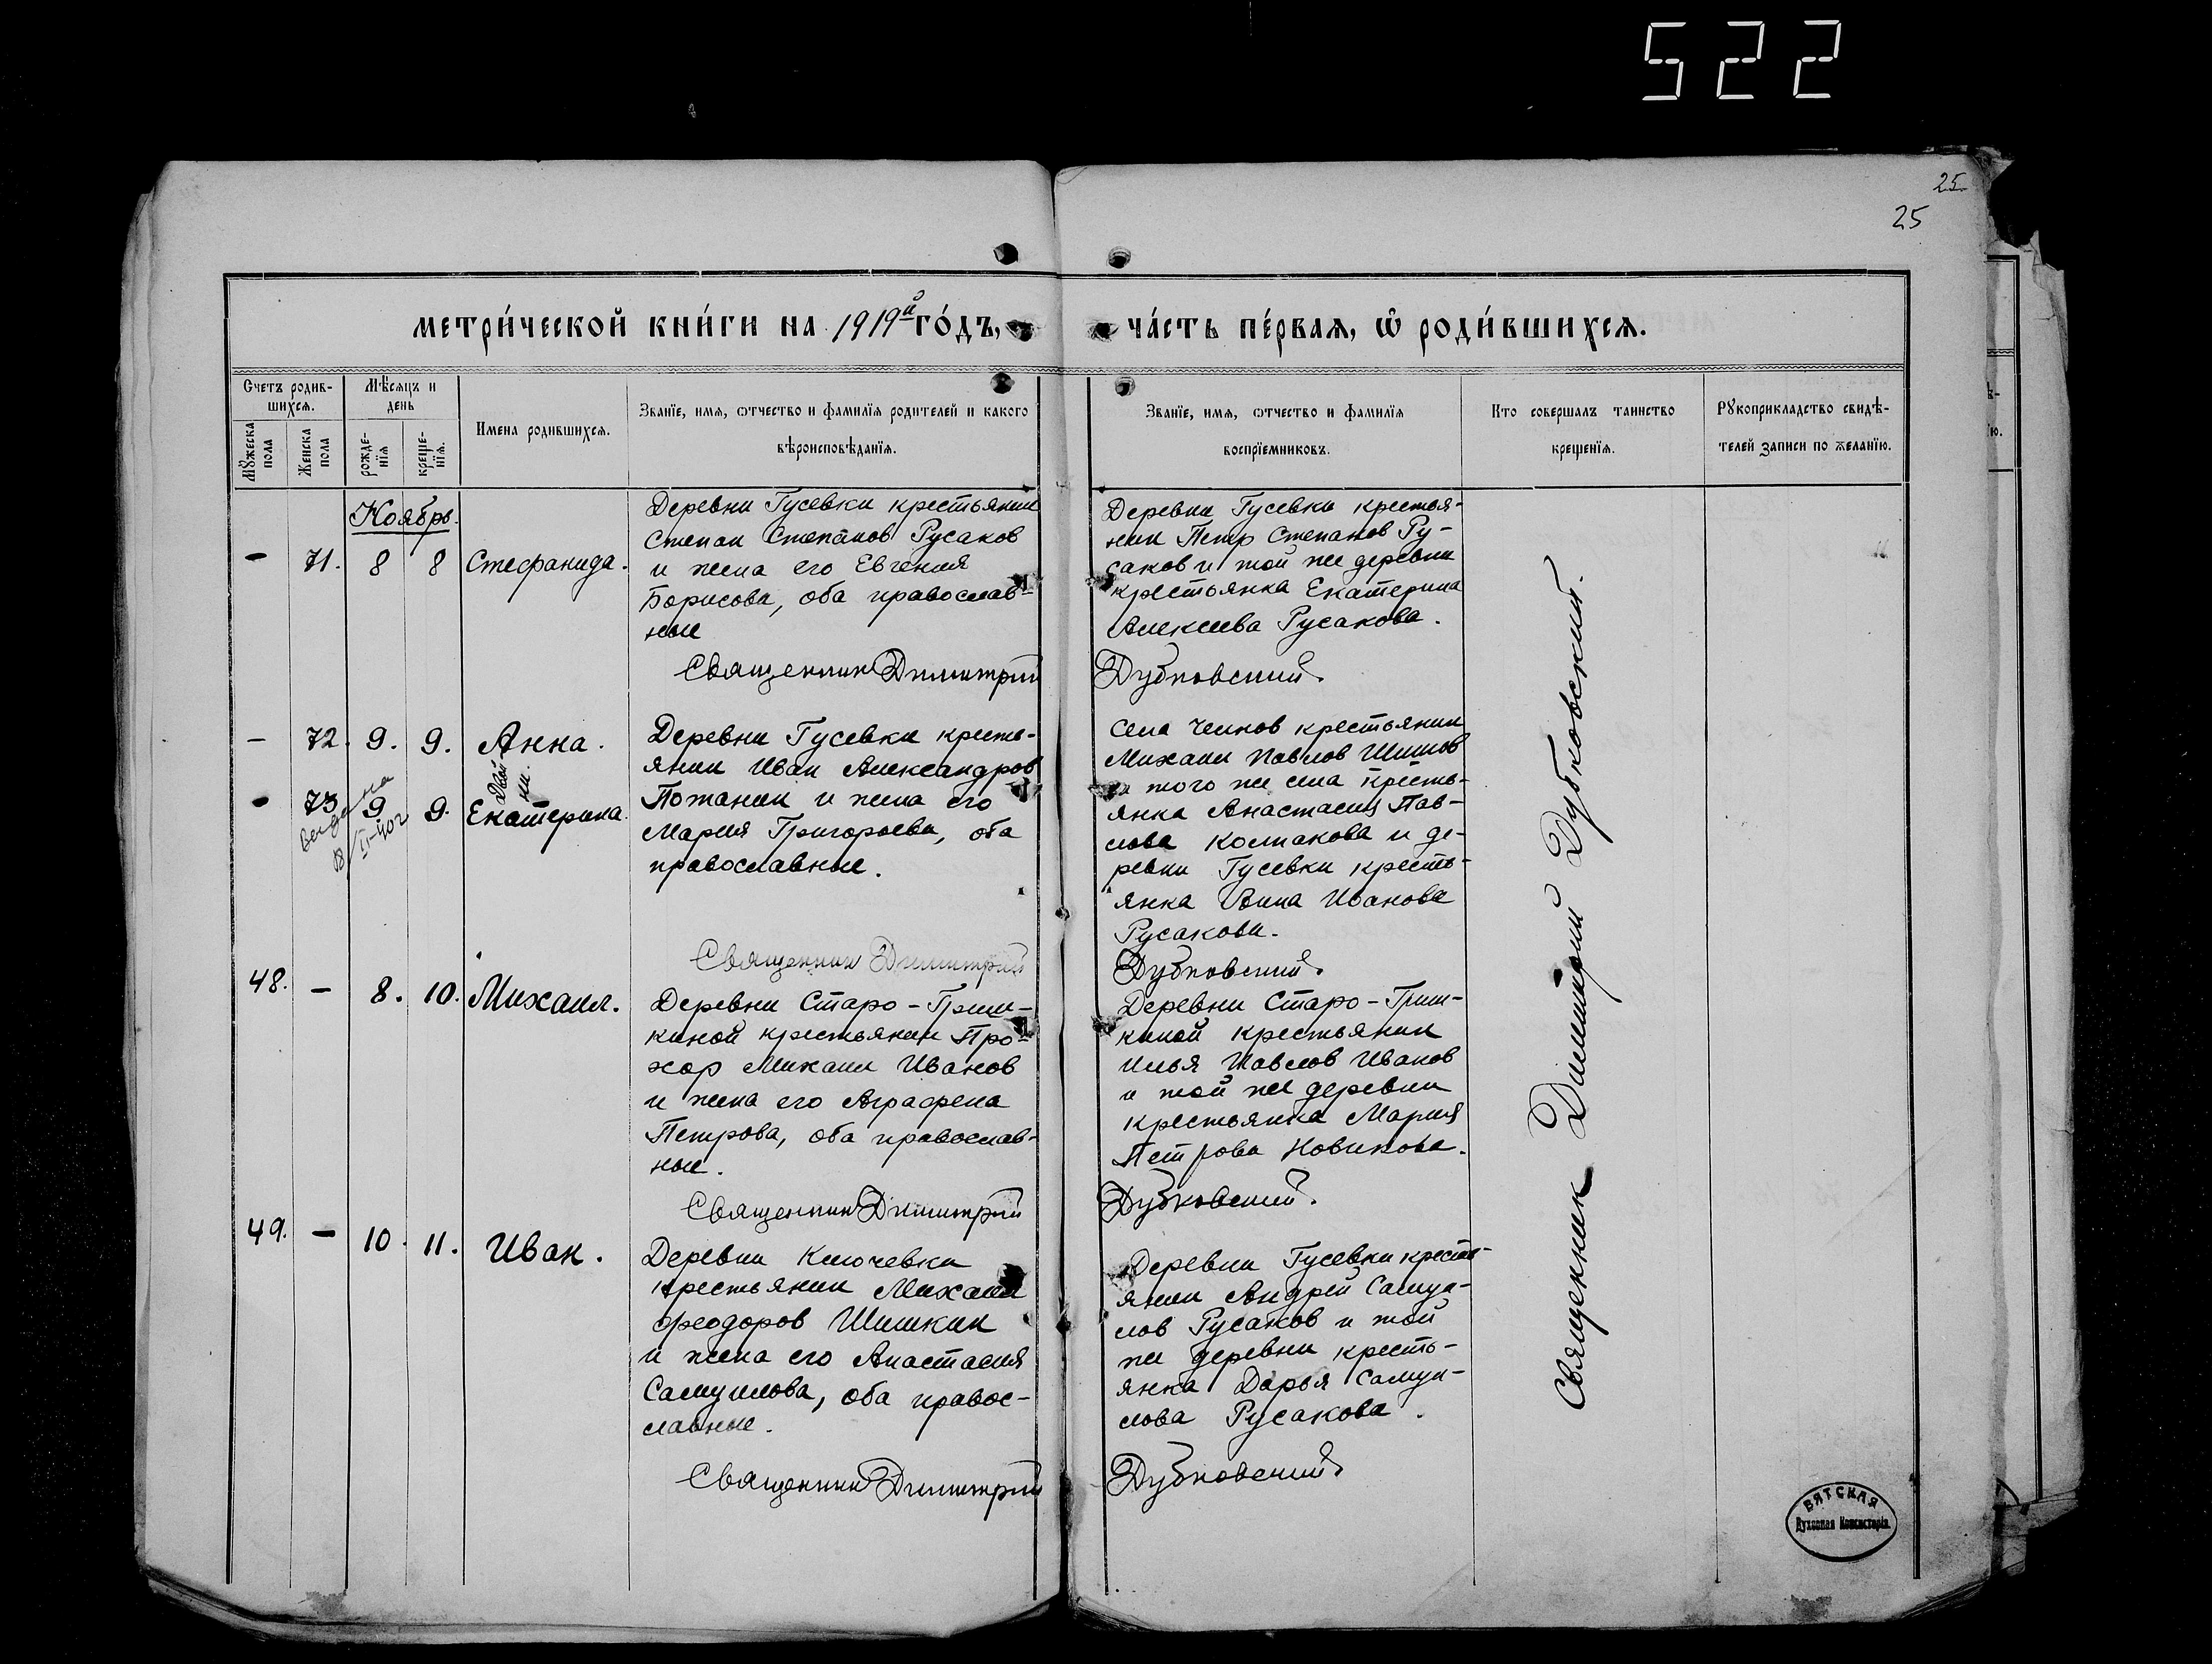 522
25
25
метри́ческой кни́ги на 1919й го́дъ,
ча́сть пе́рвая, ѡ роди́вшихсѧ.
Счетъ родив-
шихсѧ.
Мѣсѧцъ и
день
Имена родившихсѧ.
Званїе, имѧ, ѿчество и фамилїѧ родителей и какого
вѣроисповѣданїѧ.
Мꙋжеска
пола
Женска
пола
рожде-
нїѧ
креще-
нїѧ.
Званїе, имѧ, ѿчество и фамилїѧ
воспрїемниковъ.
Кто совершалъ таинство
крещенїѧ.
Рꙋкоприкладство свидѣ-
телей записи по желанїю.
Ноябрь.
- 71. 8 8 Стефанида.
Деревни Гусевки крестьянин
Степан Степанов Русаков
и жена его Евгения
Борисова, оба православ-
ные
Священник Димитрий
Деревни Гусевки крестья-
нин Петр Степанов Ру-
саков и той же деревни
крестьянка Екатерина
Алексеева Русакова.
Дубковский.
- 72. 9. 9. Анна.
Двой
ни.
- 73 9 9. Екатерина.
выдана
18/II-40г
Деревни Гусевки кресть-
янин Иван Александров
Потанин и жена его
Мария Григорьева, оба
православные.
Священник Димитрий
Села крестьянин
Михаил Павлов
и того же села кресть-
янка Анастасия Пав-
лова Колпакова и де-
ревни Гусевки кресть-
янка Анна Иванова
Русакова.
Дубковский.
48. - 8. 10. Михаил.
Деревни Старо-Гриш-
киной крестьянин Про-
хор Михаил Иванов
и жена его Аграфена
Петрова, оба православ-
ные.
Священник Димитрий
Деревни Старо-Гриш-
киной крестьянин
Илья Павлов Иванов
и той же деревни
крестьянка Мария
Петрова Новикова.
Дубковский.
49. - 10. 11. Иван.
Деревни Ключевки
крестьянин Михаил
Феодоров Шишкин
и жена его Анастасия
Самуилова, оба правос-
лавные.
Священник Димитрий
Деревни Гусевки кресть-
янин Андрей Самуи-
лов Русаков и той
же деревни кресть-
янка Дарья Самуи-
лова Русакова.
Дубковский.
Священник Димитрий Дубковский.
ВЯТСКАЯ
Духовная Консисторія.